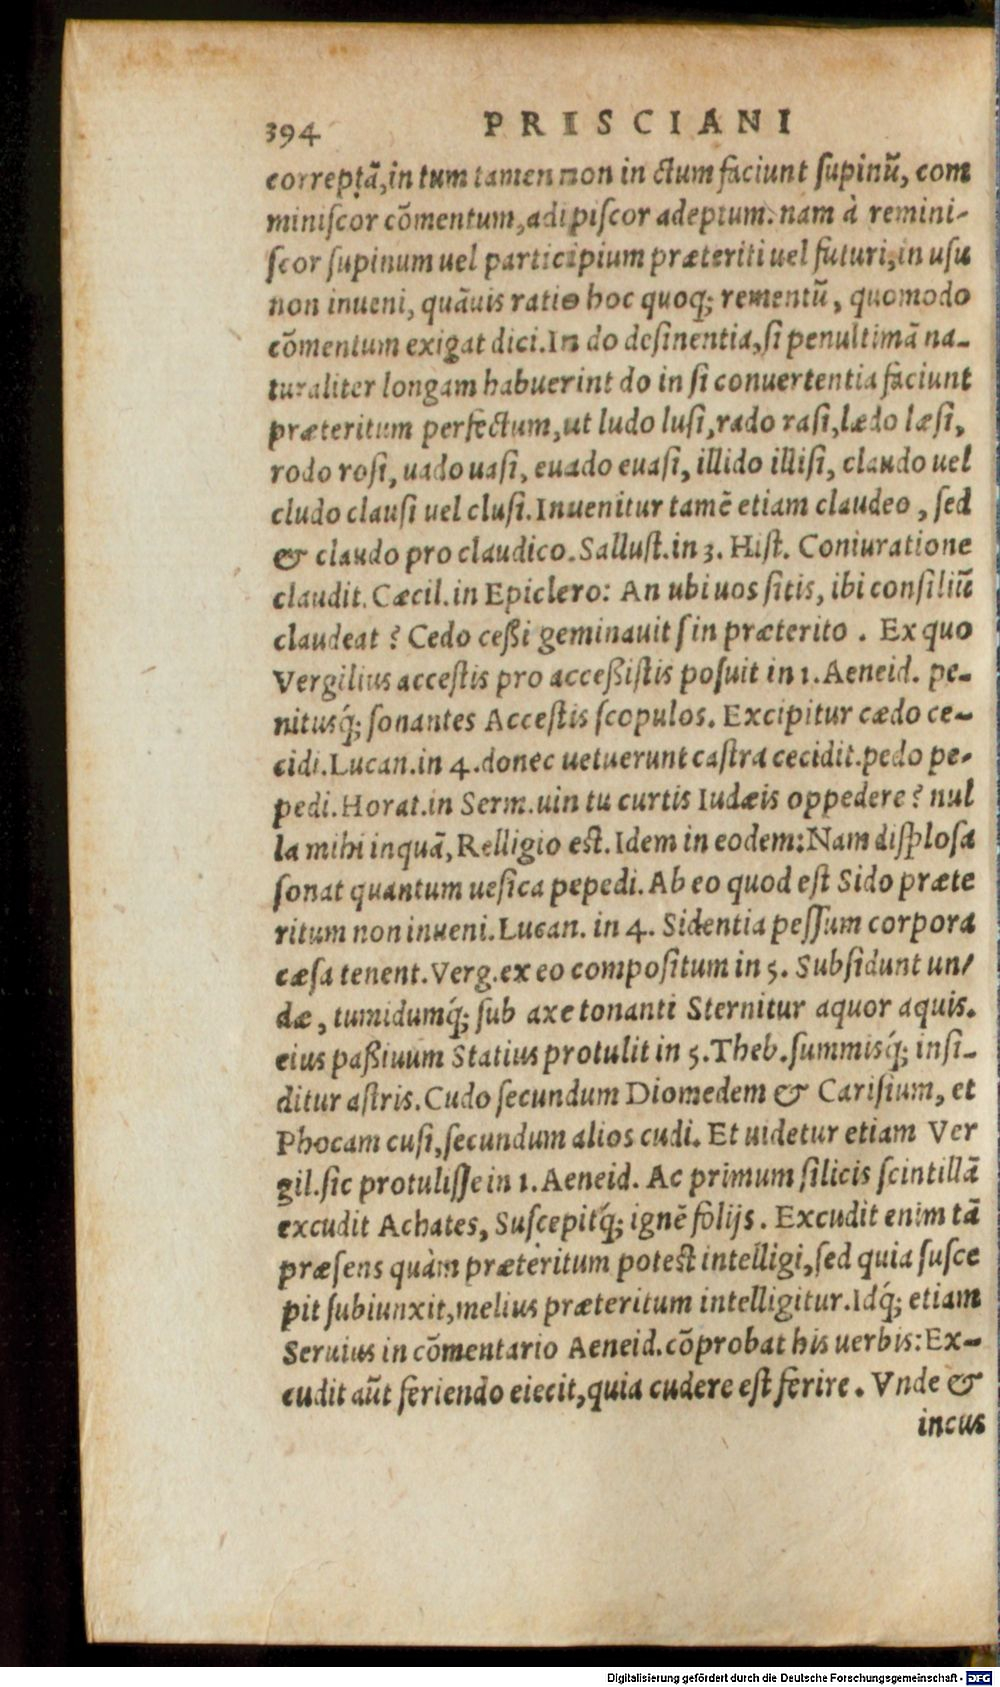 394 PRISCIANI
correptã, in tum tamen non in ctum faciunt ſupinũ, com
miniſcor cõmentum, adipiſcor adeptum. nam à remini-
ſcor ſupinum uel participium præteriti uel futuri, in uſu
non inueni, quãuis ratio hoc quoq; rementũ, quomodo
cõmentum exigat dici. In do deſinentia, ſi penultimã na-
turaliter longam habuerint do in ſi conuertentia faciunt
præteritum perfectum, ut ludo luſi, rado raſi, lædo læſi,
rodo roſi, uado uaſi, euado euaſi, illido illiſi, claudo uel
cludo clauſi uel cluſi. Inuenitur tamẽ etiam claudeo, ſed
& claudo pro claudico. Salluſt. in 3. Hiſt. Coniuratione
claudit. Cæcil. in Epiclero: An ubi uos ſitis, ibi conſiliũ
claudeat? Cedo ceßi geminauit ſ in præterito. Ex quo
Vergilius acceſtis pro acceßiſtis poſuit in 1. Aeneid. pe-
nitusq́; ſonantes Acceſtis ſcopulos. Excipitur cædo ce-
cidi. Lucan. in 4. donec uetuerunt caſtra cecidit. pedo pe-
pedi. Horat. in Serm. uin tu curtis Iudæis oppedere? nul
la mihi inquã, Relligio eſt. Idem in eodem: Nam diſploſa
ſonat quantum ueſica pepedi. Ab eo quod eſt Sido præte
ritum non inueni. Lucan. in 4. Sidentia peſſum corpora
cæſa tenent. Verg. ex eo compoſitum in 5. Subſidunt un-
dæ, tumidumq́; ſub axe tonanti Sternitur aquor aquis.
eius paßiuum Statius protulit in 5. Theb. ſummisq́; inſi-
ditur aſtris. Cudo ſecundum Diomedem & Cariſium, et
Phocam cuſi, ſecundum alios cudi. Et uidetur etiam Ver
gil. ſic protuliſſe in 1. Aeneid. Ac primum ſilicis ſcintillã
excudit Achates, Suſcepitq́; ignẽ folijs. Excudit enim tã
præſens quàm præteritum poteſt intelligi, ſed quia ſuſce
pit ſubiunxit, melius præteritum intelligitur. Idq́; etiam
Seruius in cõmentario Aeneid. cõprobat his uerbis: Ex-
cudit aũt feriendo eiecit, quia cudere eſt ferire. Vnde &
incus
Digitalisierung gefördert durch die Deutsche Forschungsgemeinschaft - DFG